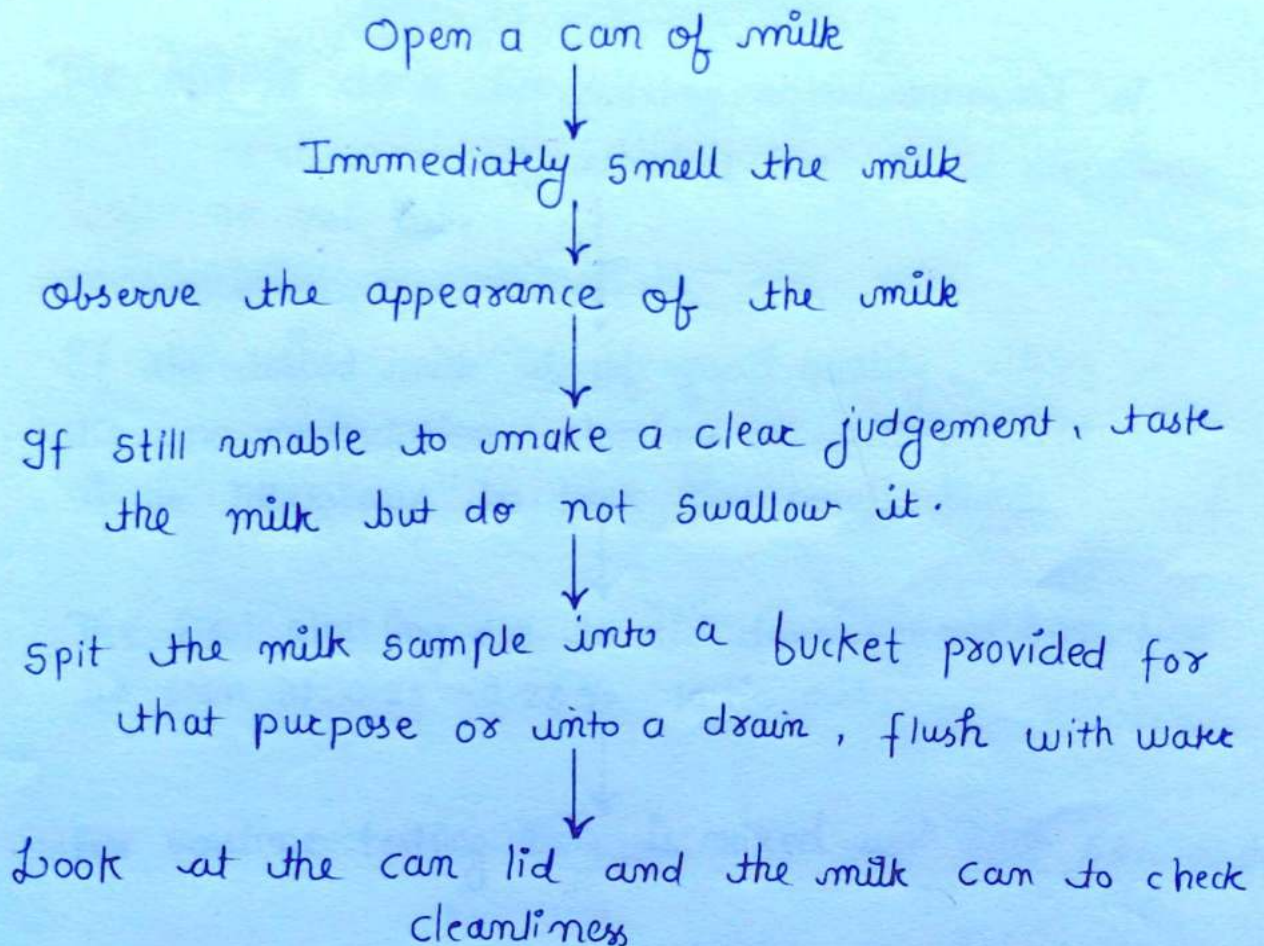 Open a can of milk
Immediately smell the milk
observe the appearance of the milk
If still unable to make a clear judgement, taste
the milk but do not swallow it.
Spit the milk sample into a bucket provided for
that purpose or into a drain, flush with water
Look at the can lid and the milk can to check
cleanliness